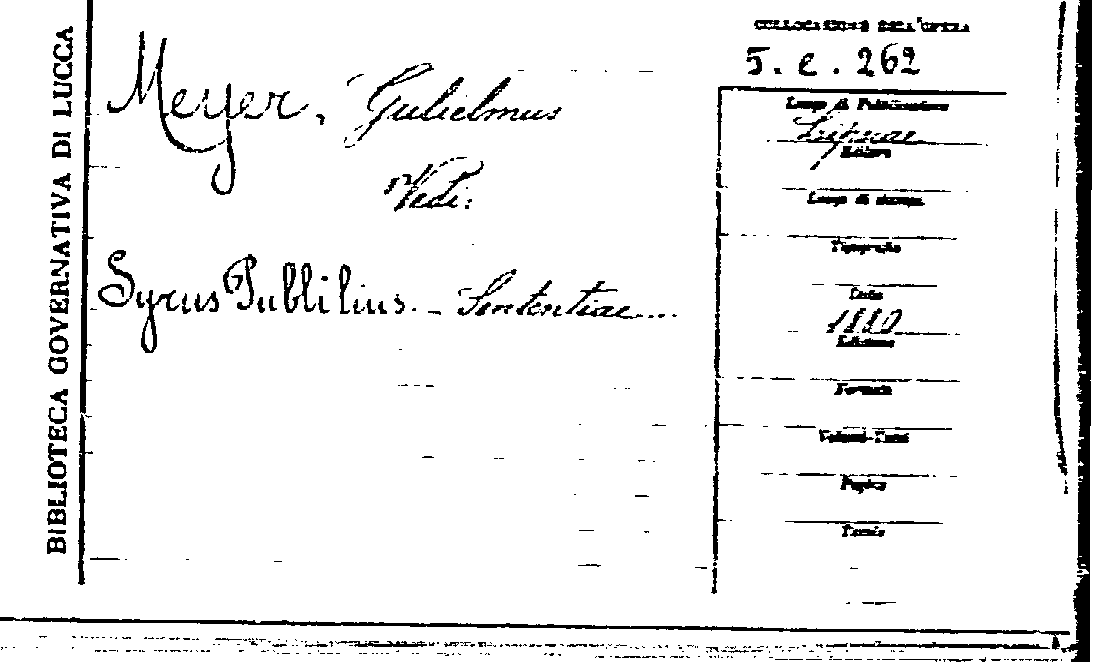 BIBLIOTECA GOVERNATIVA DI LUCCA
Meyer, Gulielmus
Vedi:
Syrus Publilius. - Sententiae....
COLLOCAZIONE DELL'OPERA
5. e. 262
Luogo di Pubblicazione
Lipsiae
Editore
Luogo di stampa
Tipografo
Data
1880
Edizione
Formato
Volumi-Tomi
Pagine
Tavole